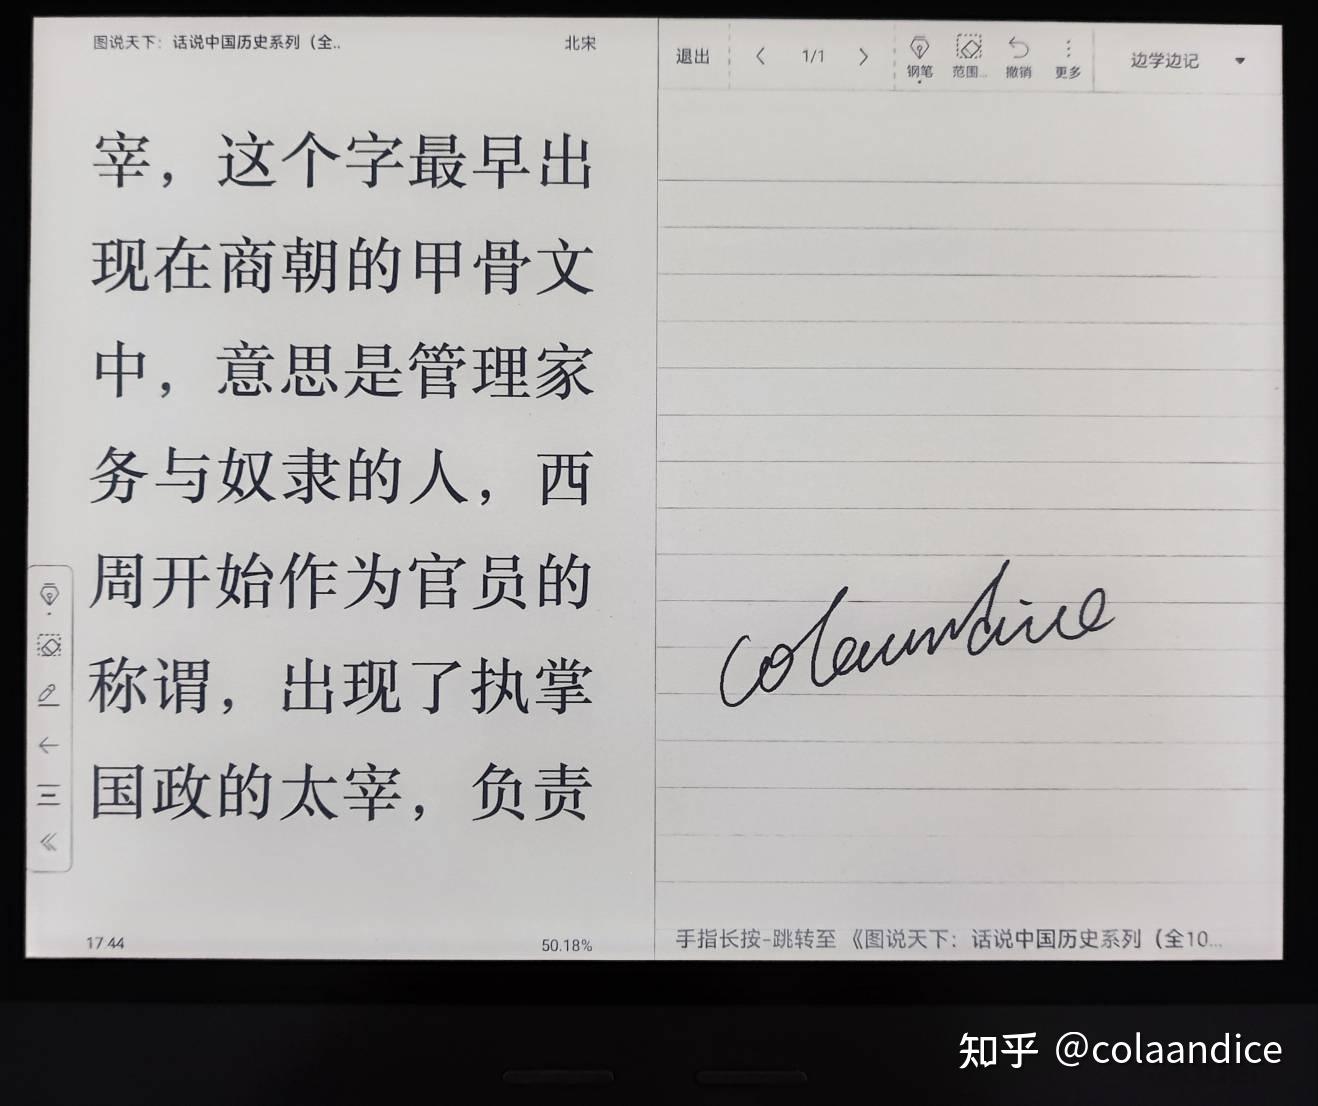 图说天下：话说中国历史系列（全..
北宋
宰，这个字最早出
现在商朝的甲骨文
中，意思是管理家
务与奴隶的人，西
周开始作为官员的
称谓，出现了执掌
国政的太宰，负责
17:44
50.18%
退出
1/1
钢笔
范围...
撤销
更多
边学边记
colaandice
手指长按-跳转至 《图说天下：话说中国历史系列（全10...
知乎 @colaandice